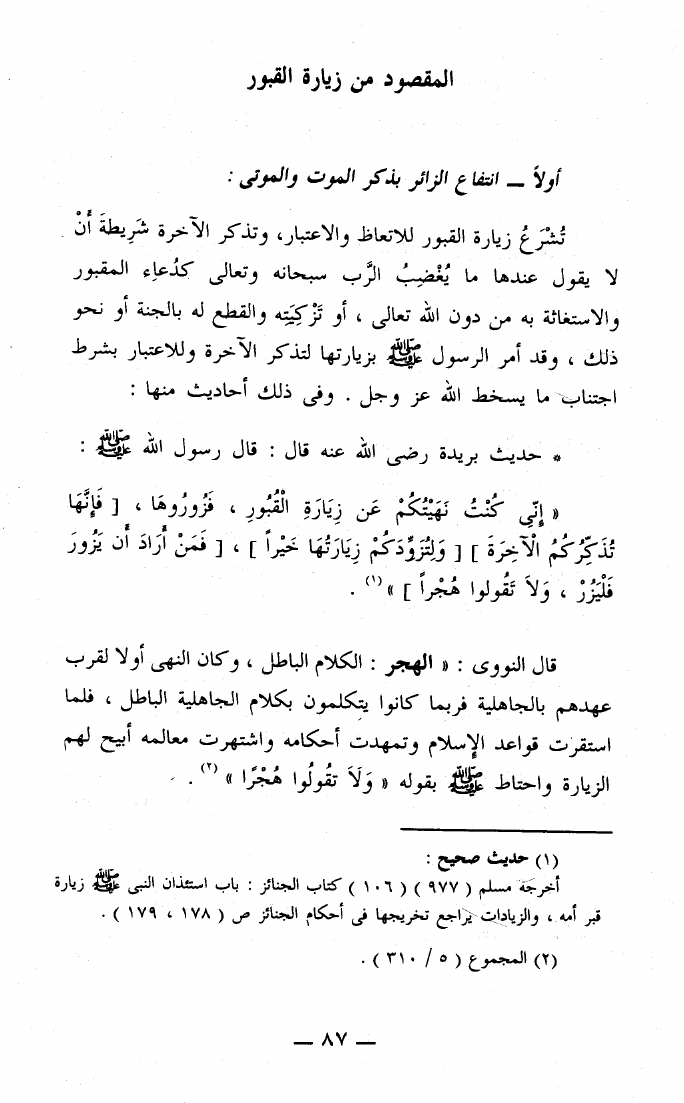 المقصود من زيارة القبور
أولاً ــ انتفاع الزائر بذكر الموت والموتى :
تُشْرَعُ زيارة القبور للاتعاظ والاعتبار، وتذكر الآخرة شَرِيطةَ أَنْ
لا يقول عندها ما يُغْضِبُ الرَّب سبحانه وتعالى كدُعاءِ المقبور
والاستغاثة به من دون الله تعالى ، أو تَزْكِيَتِه والقطع له بالجنة أو نحو
ذلك ، وقد أمر الرسول ﷺ بزيارتها لتذكر الآخرة وللاعتبار بشرط
اجتناب ما يسخط الله عز وجل . وفى ذلك أحاديث منها :
* حديث بريدة رضى الله عنه قال : قال رسول الله ﷺ :
« إِنِّي كُنْتُ نَهَيْتُكُمْ عَن زِيَارَةِ الْقُبُورِ ، فَزُورُوهَا ، [ فَإِنَّهَا
تُذَكِّرُكُمُ الْآخِرَةَ ] [ وَلِتُزَوِّدَكُمْ زِيَارَتُهَا خَيْراً ] ، [ فَمَنْ أَرَادَ أَن يَزُورَ
فَلْيَزُرْ ، وَلاَ تَقُولوا هُجْراً ] » (١) .
قال النووى : « الهجر : الكلام الباطل ، وكان النهى أولا لقرب
عهدهم بالجاهلية فربما كانوا يتكلمون بكلام الجاهلية الباطل ، فلما
استقرت قواعد الإسلام وتمهدت أحكامه واشتهرت معالمه أبيح لهم
الزيارة واحتاط ﷺ بقوله « وَلَا تَقُولُوا هُجْرًا » (٢) .
(١) حديث صحيح :
أخرجه مسلم ( ٩٧٧ ) ( ١٠٦ ) كتاب الجنائز : باب استئذان النبى ﷺ زيارة
قبر أمه ، والزيادات يراجع تخريجها فى أحكام الجنائز ص ( ١٧٨ ، ١٧٩ ) .
(٢) المجموع ( ٥ / ٣١٠ ) .
— ٨٧ —